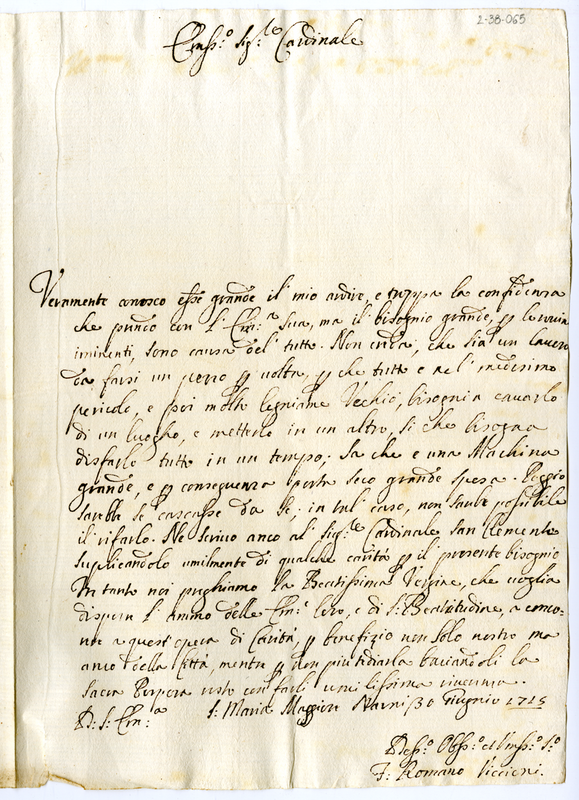 2-38-065
Emss.º Sig.re Cardinale
Veramente conosco esse grande il mio ardire, e troppa la confidenza
che prendo con l'Em.a Sua, ma il bisognio grande, p le ruine
iminenti, sono causa del tutto. Non creda, che sia un lavoro
da farsi un pezzo p volta, p che tutto e nel medesimo
pericolo, e poi molto legniame Vechio, bisognia cavarlo
di un luogho, e metterlo in un altro, si che bisogna
disfarlo tutto in un tempo. Sa che e una Machina
grande, e p conseguenza porta seco grande spesa. Peggio
sarebbe se cascasse da se, in tal caso, non sarebe possibile
il rifarlo. Ne scrivo anco al Sig.re Cardinale San Clemente
suplicandolo umilmente di qualche carità p il presente bisognio
In tanto noi preghiamo la Beatissima Vergine, che voglia
disporre l'animo delle Em.e loro, e di S. Beatitudine, a conco-
rere a quest'opera di Carità, p benefizio non solo nostro ma
anco della Città, mentre p non piu tediarla baciandoli la
Sacra Porpora resto con farli umilissima riverenza.
D. S. Em.a S. Maria Maggiore Narni 30 Giugnio 1715
Dess.º Obss.º et Umss.º S.º
F. Romano